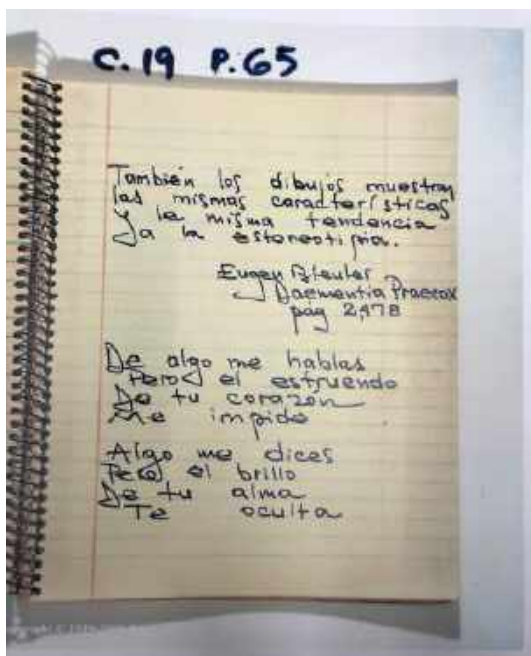 C.19 P.65
También los dibujos muestran
las mismas características
y la misma tendencia
a la estereotipia.
Eugen Bleuler
Daementia Praecox
pag 2,478
De algo me hablas
Pero el estruendo
De tu corazon
Me impide
Algo me dices
Pero el brillo
De tu alma
Te oculta